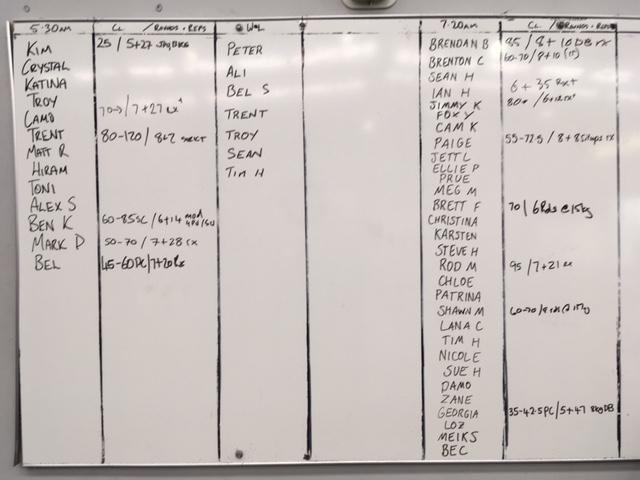 5:30AM
CL / ROUNDS + REPS
KIM 25 / 5+27
CRYSTAL
KATINA
TROY
CAMO 70 / 7+27 RX
TRENT 80-120 / 8+2
MATT R
HIRAM
TONI
ALEX S
BEN K 60-85SC / 6+14 MOD
MARK D 50-70 / 7+28 RX
BEL 45-60PC / 7+20 RX
WOL
PETER
ALI
BEL S
TRENT
TROY
SEAN
TIM H
7:20AM
CL / ROUNDS + REPS
BRENDAN B 95 / 8+10 DB RX
BRENTON C 60-70 / 8+10
SEAN H
IAN H 6+35 RX+
JIMMY K 80 / 6+12 RX
FOXY
CAM K
PAIGE 55-77.5 / 8+8 Situps RX
JETT L
ELLIE P
PRUE
MEG M
BRETT F 70 / 6 Rds @ 15kg
CHRISTINA
KARSTEN
STEVE H
ROD M 95 / 7+21 RX
CHLOE
PATRINA
SHAWN M 60-70 /
LANA C
TIM H
NICOLE
SUE H
DAMO
ZANE
GEORGIA 35-42.5PC / 5+47 8kg DB
LOZ
MEIKS
BEC